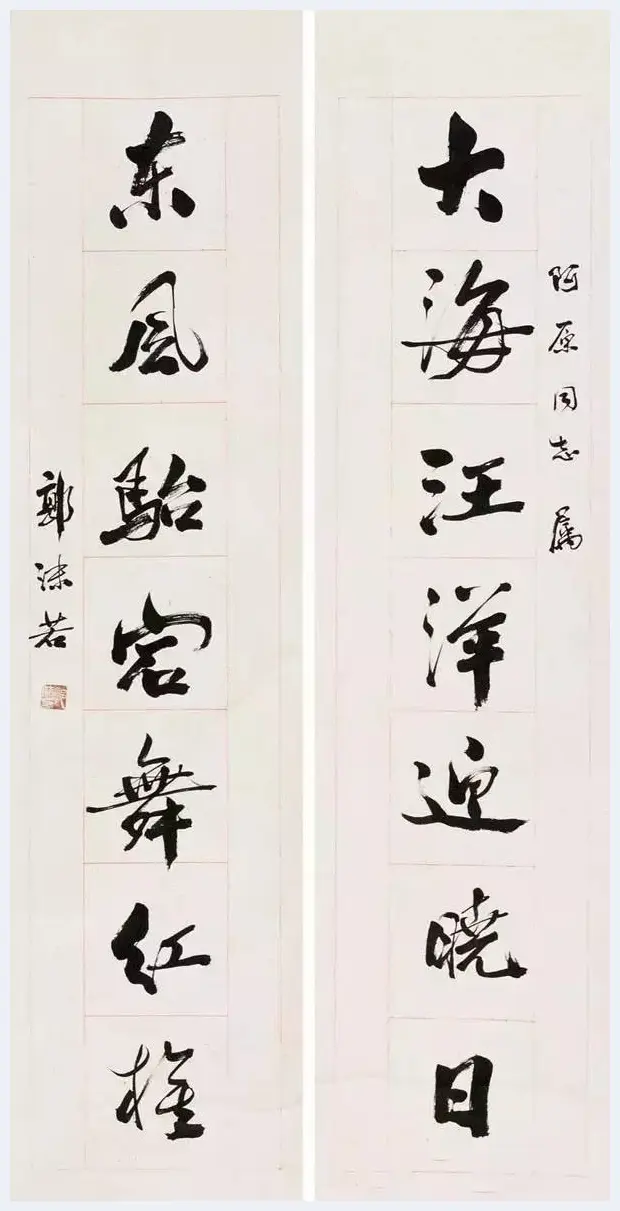 阿原同志 属
大海汪洋迎晓日
东风駘宕舞红旌
郭沫若